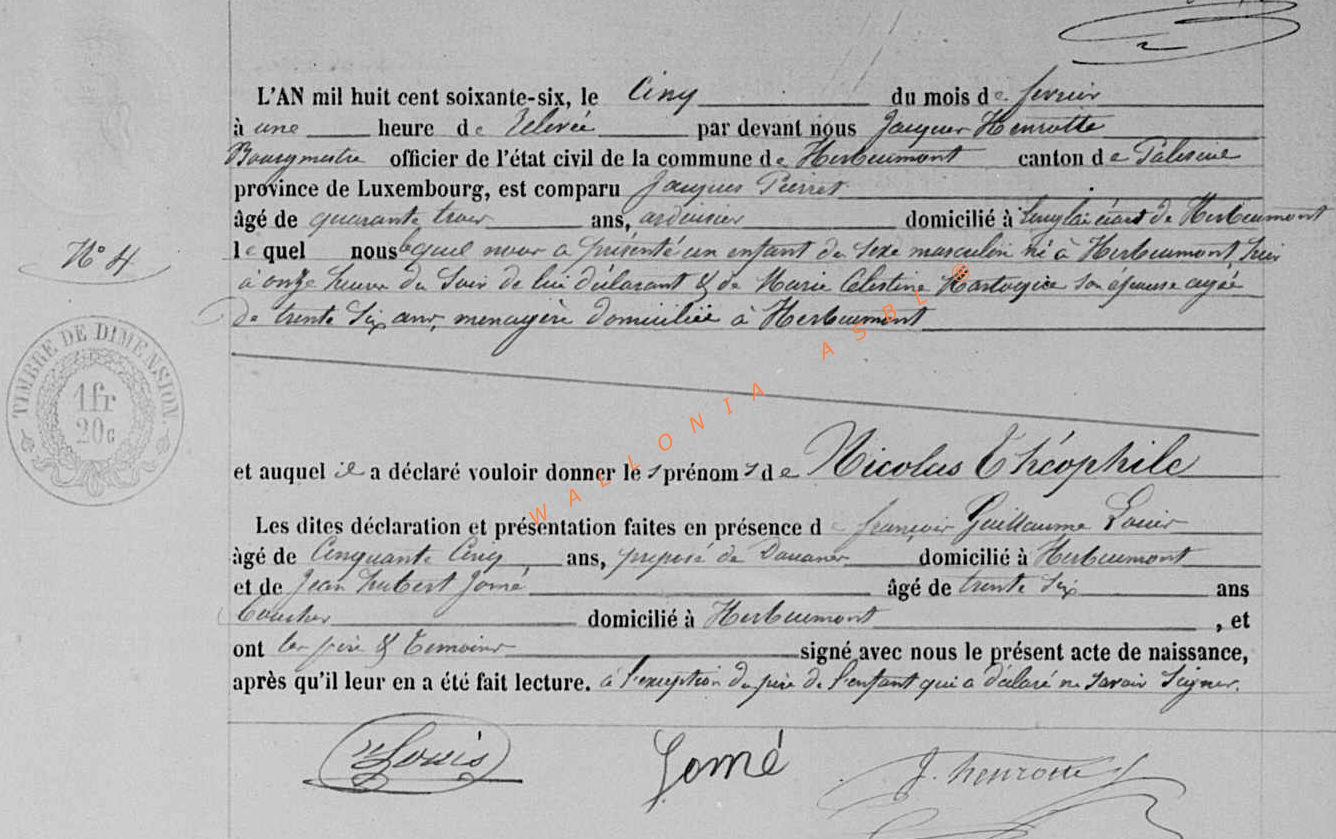 L'AN mil huit cent soixante-six, le Cinq du mois de fevrier
à une heure de relevée par devant nous Jacques Henrotte
Bourgmestre officier de l'état civil de la commune de Herbeumont canton de Paliseul
province de Luxembourg, est comparu Jacques Pierret
âgé de quarante trois ans, ardoisier domicilié à écart de Herbeumont
N° 4
lequel nous lequel nous a présenté un enfant du sexe masculin né à Herbeumont, hier
à onze heures du soir de lui déclarant & de Marie Célestine son épouse agée
de trente six ans, menagère domiciliée à Herbeumont
TIMBRE DE DIMENSION.
1fr
20c
WALLONIA ASBL
et auquel il a déclaré vouloir donner les prénoms de Nicolas Théophile
Les dites déclaration et présentation faites en présence de françois Guillaume Louis
âgé de Cinquante Cinq ans, preposé de Douanes domicilié à Herbeumont
et de Jean hubert Jomé âgé de trente six ans
domicilié à Herbeumont , et
ont les père & temoins signé avec nous le présent acte de naissance,
après qu'il leur en a été fait lecture. à l'exception du père de l'enfant qui a déclaré ne savoir signer.
Louis Jomé J. henrotte